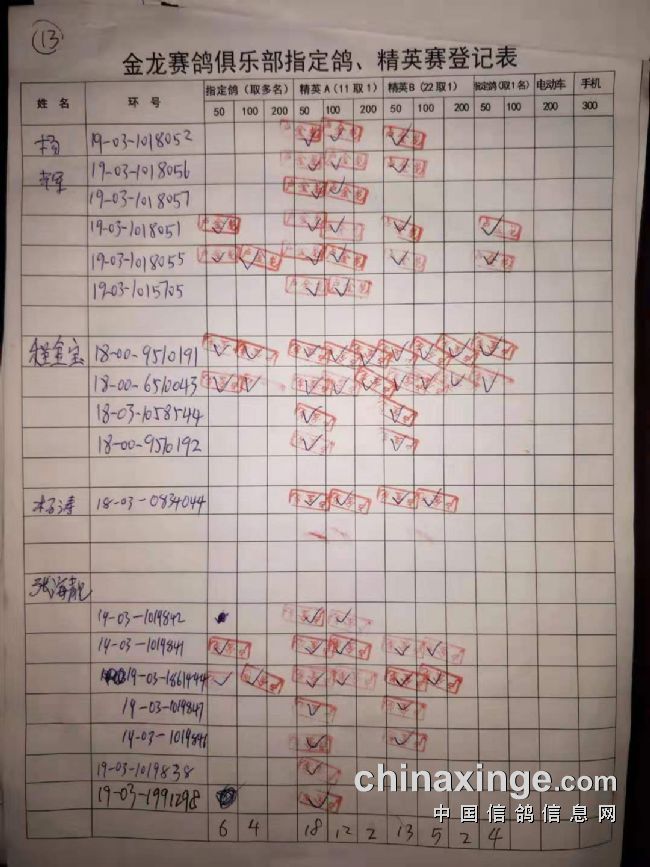 13
金龙赛鸽俱乐部指定鸽、精英赛登记表
姓 名 环 号 指定鸽（取多名） 精英A（11取1） 精英B（22取1） 指定鸽(取1名) 电动车 手机
50 100 200 50 100 200 50 100 200 50 100 200 300
杨 19-03-1018052
19-03-1018056
19-03-1018057
19-03-1018051
19-03-1018055
19-03-1015705
程金宝 18-00-9510191
18-00-6510043
18-03-1058544
18-00-9510192
杨涛 18-03-0834044
张海靓
19-03-1019842
19-03-1019841
19-03-1861444
19-03-1019847
19-03-1019838
19-03-1991298
6 4 18 12 2 13 5 2 4
chinaxinge.com
中国信鸽信息网